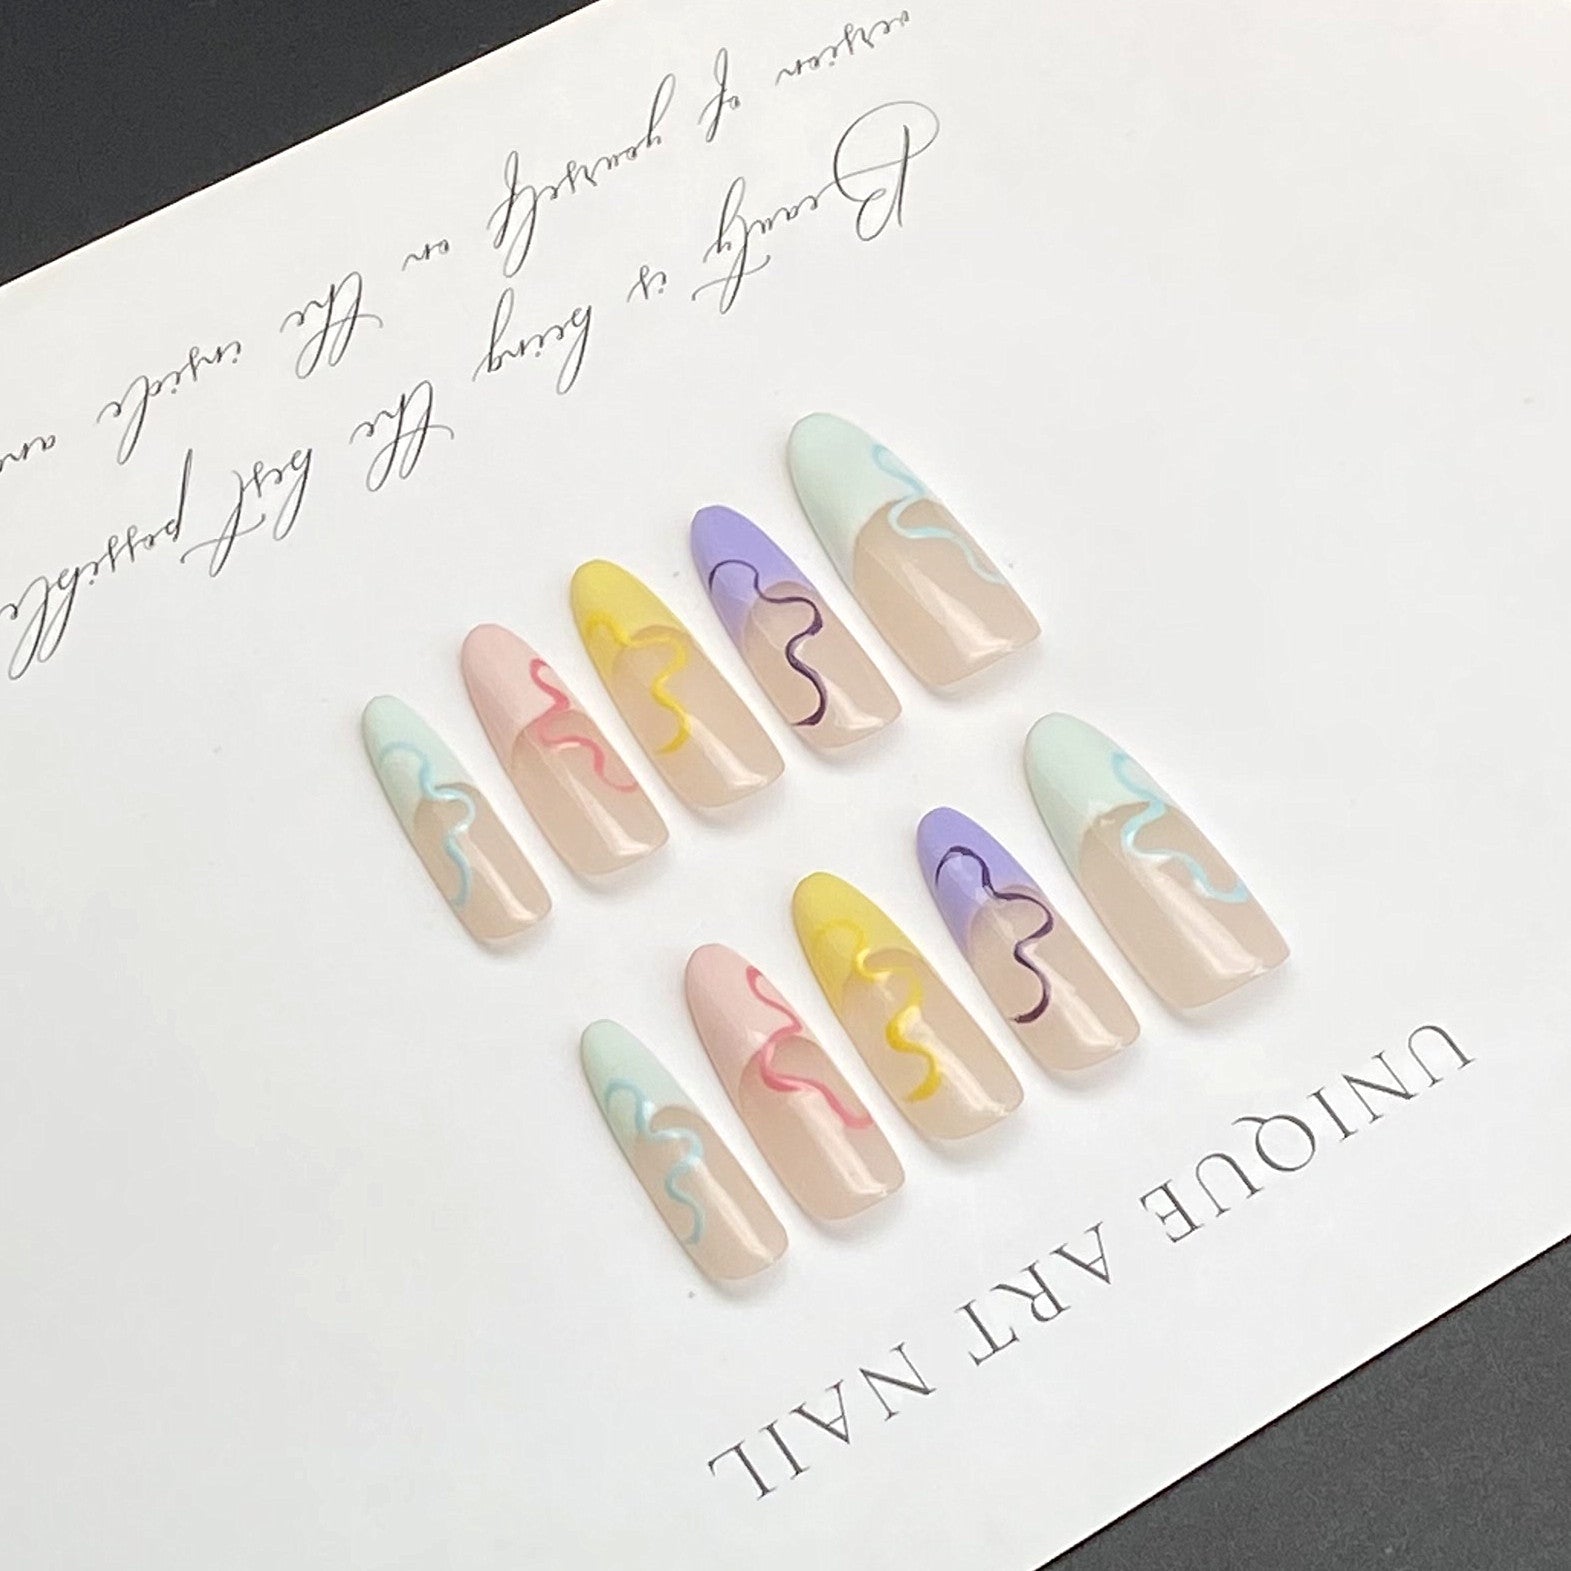 UNIQUE ART NAIL
Beauty is being the best possible
version of yourself on the inside an